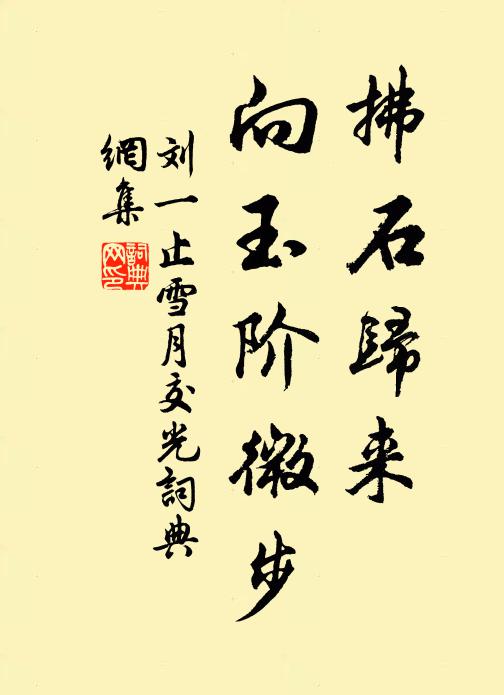 拂石歸来
向玉阶微步
刘一止雪月交光詞典
網集
詞典网印